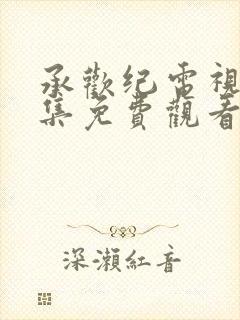 承歡纪電視
集免費觀看
深瀨紅音